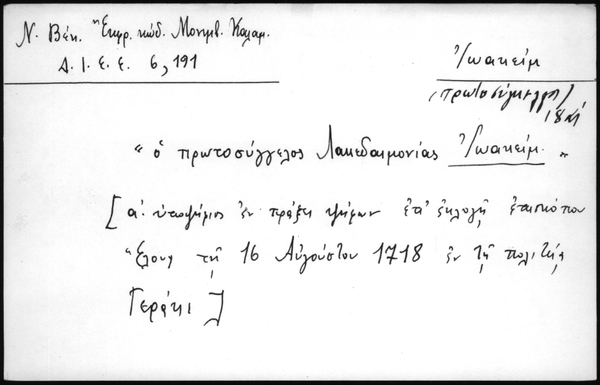 Ν. Βέη. Ἡ Ἐκφρ. κώδ. Μονμβ. Καλαμ.
Δ. Ι. Ε. Ε. 6, 191
Ἰωακεὶμ
(πρωτοσύγκελλος)
"ὁ πρωτοσύγγελος Λακεδαιμονίας Ἰωακείμ."
[α΄. ὑποψήφιος ἐν πράξει ψήφων ἐπ' ἐκλογῇ ἐπισκόπου
Ἕλους τῇ 16 Αὐγούστου 1718 ἐν τῇ πολιτείᾳ
Γεράκι]